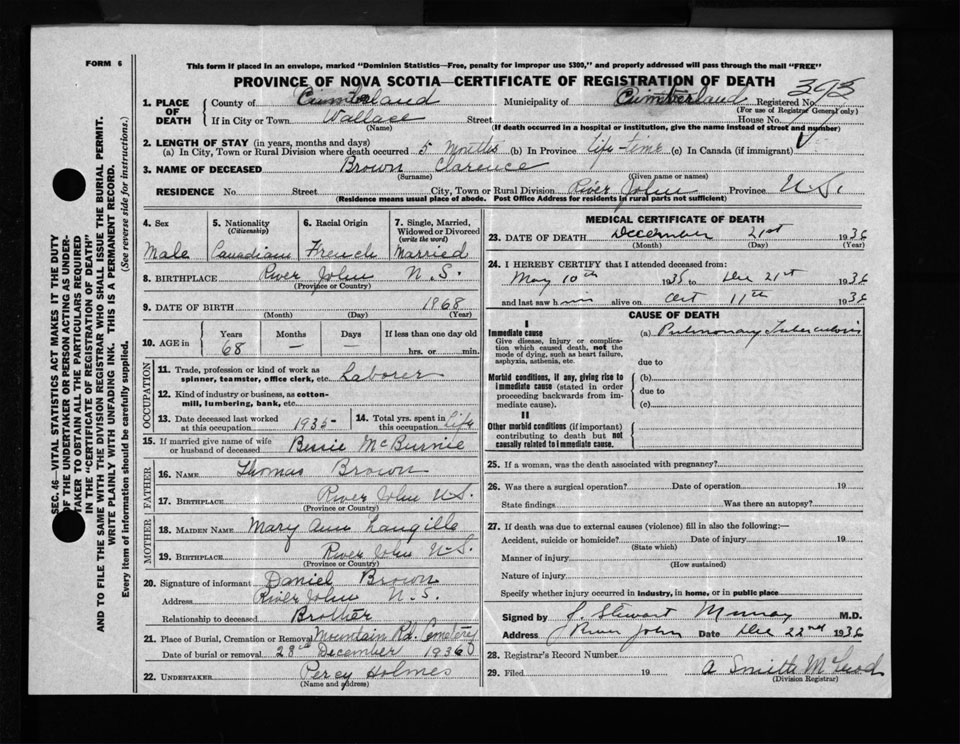 FORM 6
This form if placed in an envelope, marked "Dominion Statistics—Free, penalty for improper use $300," and properly addressed will pass through the mail "FREE"
PROVINCE OF NOVA SCOTIA—CERTIFICATE OF REGISTRATION OF DEATH
393
1. PLACE OF DEATH County of Cumberland Municipality of Cumberland Registered No.
(For use of Registrar General only)
If in City or Town Wallace Street House No.
(Name) (If death occurred in a hospital or institution, give the name instead of street and number)
2. LENGTH OF STAY (in years, months and days)
(a) In City, Town or Rural Division where death occurred 5 Months (b) In Province life-time (c) In Canada (if immigrant)
3. NAME OF DECEASED Brown Clarence
(Surname) (Given name or names)
RESIDENCE No. Street City, Town or Rural Division River John Province N.S.
(Residence means usual place of abode. Post Office Address for residents in rural parts not sufficient)
4. Sex Male
5. Nationality (Citizenship) Canadian
6. Racial Origin French
7. Single, Married, Widowed or Divorced (write the word) Married
8. BIRTHPLACE River John N.S.
(Province or Country)
9. DATE OF BIRTH 1868
(Month) (Day) (Year)
10. AGE in Years 68 Months — Days — If less than one day old hrs. or min.
OCCUPATION
11. Trade, profession or kind of work as spinner, teamster, office clerk, etc. Laborer
12. Kind of industry or business, as cotton-mill, lumbering, bank, etc.
13. Date deceased last worked at this occupation 1935
14. Total yrs. spent in this occupation life
15. If married give name of wife or husband of deceased Bessie McBurnie
FATHER
16. NAME Thomas Brown
17. BIRTHPLACE River John N.S.
(Province or Country)
MOTHER
18. MAIDEN NAME Mary Ann Langille
19. BIRTHPLACE River John N.S.
(Province or Country)
20. Signature of informant Daniel Brown
Address River John N.S.
Relationship to deceased Brother
21. Place of Burial, Cremation or Removal Mountain Rd. Cemetery
Date of burial or removal 23rd December 1936
22. UNDERTAKER Percy Holmes
(Name and address)
MEDICAL CERTIFICATE OF DEATH
23. DATE OF DEATH December 21st 1936
(Month) (Day) (Year)
24. I HEREBY CERTIFY that I attended deceased from:
May 10th 1935 to Dec 21st 1936
and last saw him alive on Oct 11th 1936
CAUSE OF DEATH
I
Immediate cause (a) Pulmonary Tuberculosis
Give disease, injury or complication which caused death, not the mode of dying, such as heart failure, asphyxia, asthenia, etc.
due to
Morbid conditions, if any, giving rise to immediate cause (stated in order proceeding backwards from immediate cause).
(b)
due to
(c)
II
Other morbid conditions (if important) contributing to death but not causally related to immediate cause.
25. If a woman, was the death associated with pregnancy?
26. Was there a surgical operation? Date of operation 19
State findings Was there an autopsy?
27. If death was due to external causes (violence) fill in also the following:—
Accident, suicide or homicide? Date of injury 19
(State which)
Manner of injury
(How sustained)
Nature of injury
Specify whether injury occurred in industry, in home, or in public place
Signed by J. Stewart Murray M.D.
Address River John Date Dec 22nd 1936
28. Registrar's Record Number
29. Filed 19 A Smith McLeod
(Division Registrar)
SEC. 46—VITAL STATISTICS ACT MAKES IT THE DUTY
OF THE UNDERTAKER OR PERSON ACTING AS UNDER-
TAKER TO OBTAIN ALL THE PARTICULARS REQUIRED
IN THE "CERTIFICATE OF REGISTRATION OF DEATH"
AND TO FILE THE SAME WITH THE DIVISION REGISTRAR WHO SHALL ISSUE THE BURIAL PERMIT.
WRITE PLAINLY WITH UNFADING INK. THIS IS A PERMANENT RECORD.
Every item of information should be carefully supplied. (See reverse side for instructions.)